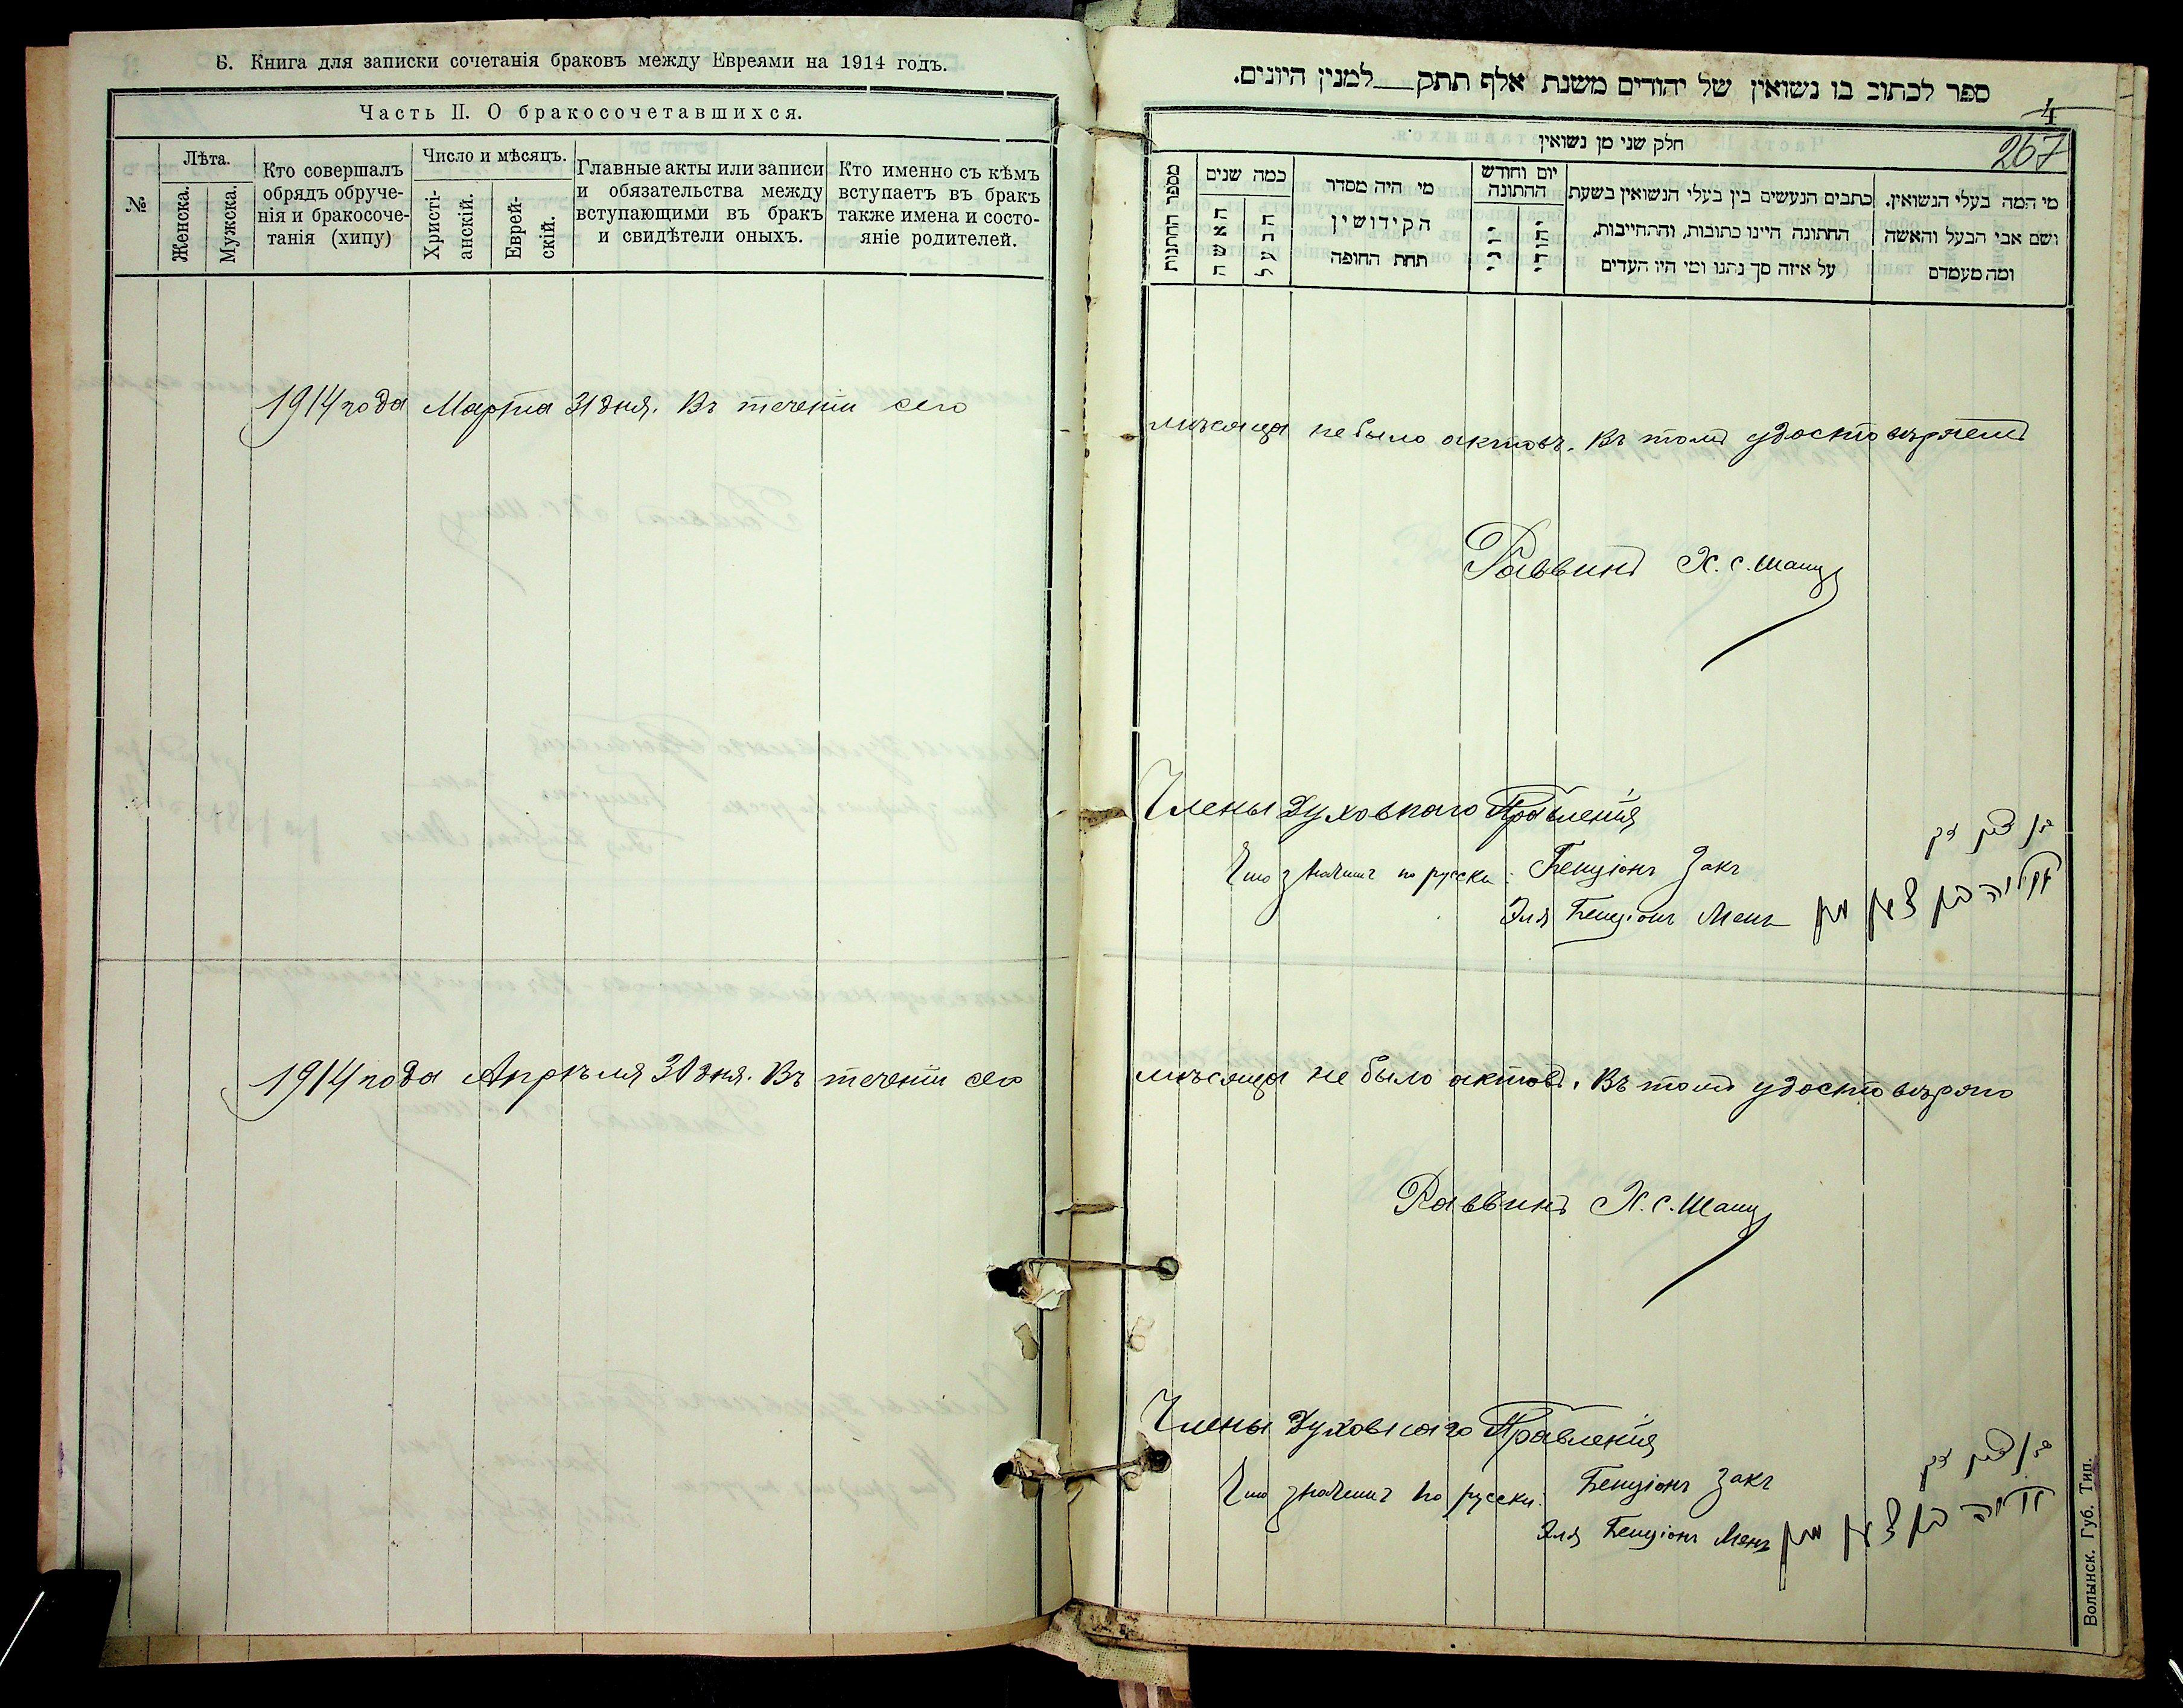 Б. Книга для записки сочетанія браковъ между Евреями на 1914 годъ.
Часть II. О бракосочетавшихся.
№
Лѣта.
Женска.
Мужска.
Кто совершалъ
обрядъ обруче-
нія и бракосоче-
танія (хипу)
Число и мѣсяцъ.
Христі-
анскій.
Еврей-
скій.
Главные акты или записи
и обязательства между
вступающими въ бракъ
и свидѣтели оныхъ.
Кто именно съ кѣмъ
вступаетъ въ бракъ
также имена и состо-
яніе родителей.
1914 года Марта 31 дня. Въ теченіи сего
1914 года Апрѣля 30 дня. Въ теченіи сего
ספר לכתוב בו נשואין של יהודים משנת אלף תתק___למנין היונים.
4
267
חלק שני מן נשואין
מספר החתונות
כמה שנים
האשה
הבעל
מי היה מסדר
הקידושין
תחת החופה
יום וחודש
החתונה
יוני
יהודי
כתבים הנעשים בין בעלי הנשואין בשעת
החתונה היינו כתובות, והתחייבות,
על איזה סך נתנו ומי היו העדים
מי המה בעלי הנשואין.
ושם אבי הבעל והאשה
ומה מעמדם
мѣсяца не было актовъ. Въ томъ удостовѣряемъ
Раввинъ Х. С.
Члены Духовнаго Правленія
בן ציון זק
Что значитъ по русски: Бенціонъ Закъ
Эля Бенціонъ Менъ
אליה בן ציון מן
мѣсяца не было актовъ. Въ томъ удостовѣряю
Раввинъ Х. С.
Члены Духовнаго Правленія
בן ציון זק
Что значитъ по русски: Бенціонъ Закъ
Эля Бенціонъ Менъ
אליה בן ציון מן
Волынск. Губ. Тип.